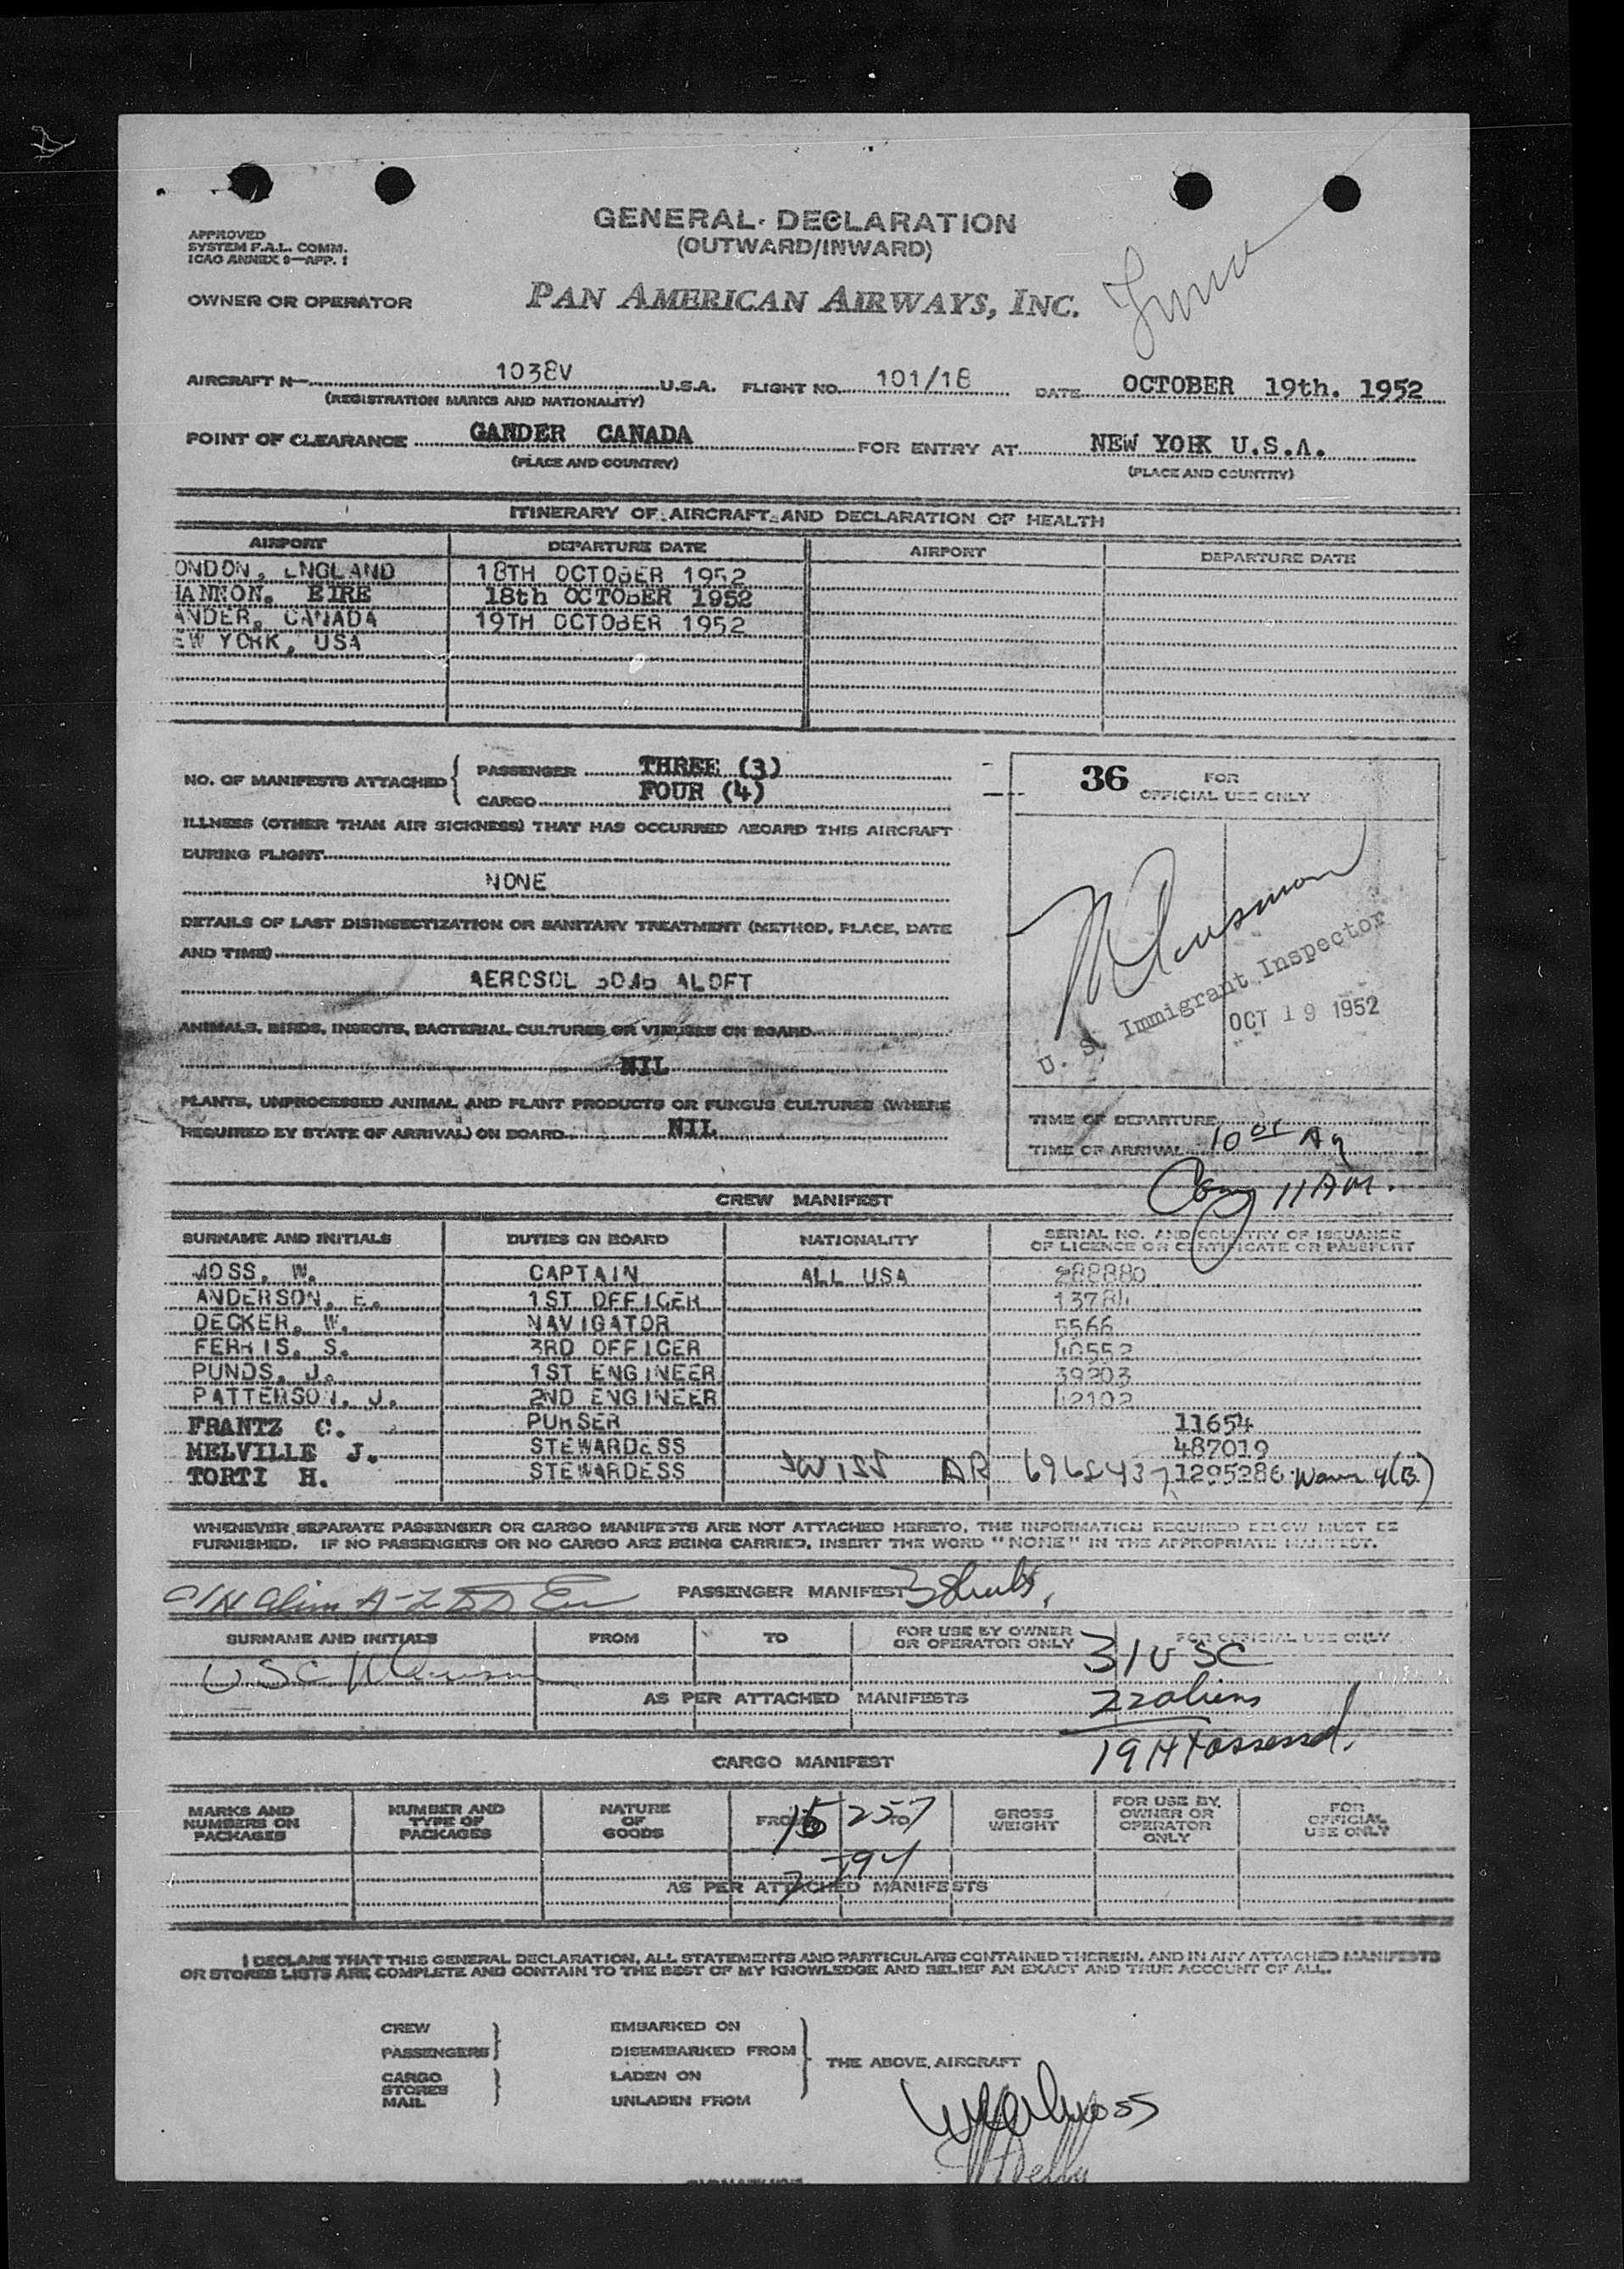 GENERAL DECLARATION
(OUTWARD/INWARD)
APPROVED
SYSTEM F.A.L. COMM.
ICAO ANNEX 9—APP. 1
OWNER OR OPERATOR PAN AMERICAN AIRWAYS, INC.
AIRCRAFT N— 1038V U.S.A. FLIGHT NO. 101/18 DATE OCTOBER 19th. 1952
(REGISTRATION MARKS AND NATIONALITY)
POINT OF CLEARANCE GANDER CANADA FOR ENTRY AT NEW YORK U.S.A.
(PLACE AND COUNTRY) (PLACE AND COUNTRY)
ITINERARY OF AIRCRAFT AND DECLARATION OF HEALTH
AIRPORT DEPARTURE DATE AIRPORT DEPARTURE DATE
ONDON, ENGLAND 18TH OCTOBER 1952
HANNON, EIRE 18th OCTOBER 1952
ANDER, CANADA 19TH OCTOBER 1952
EW YORK, USA
NO. OF MANIFESTS ATTACHED { PASSENGER THREE (3)
CARGO FOUR (4)
36 FOR
OFFICIAL USE ONLY
ILLNESS (OTHER THAN AIR SICKNESS) THAT HAS OCCURRED ABOARD THIS AIRCRAFT
DURING FLIGHT
NONE
DETAILS OF LAST DISINSECTIZATION OR SANITARY TREATMENT (METHOD, PLACE, DATE
AND TIME)
AEROSOL BOMB ALOFT
U. S. Immigrant Inspector
OCT 19 1952
ANIMALS, BIRDS, INSECTS, BACTERIAL CULTURES OR VIRUSES ON BOARD
NIL
PLANTS, UNPROCESSED ANIMAL AND PLANT PRODUCTS OR FUNGUS CULTURES (WHERE
REQUIRED BY STATE OF ARRIVAL) ON BOARD NIL
TIME OF DEPARTURE
TIME OF ARRIVAL
11 AM.
CREW MANIFEST
SURNAME AND INITIALS DUTIES ON BOARD NATIONALITY SERIAL NO. AND COUNTRY OF ISSUANCE
OF LICENCE OR CERTIFICATE OR PASSPORT
MOSS, W. CAPTAIN ALL USA 288880
ANDERSON, E. 1ST OFFICER
DECKER, W. NAVIGATOR 5566
FERRIS, S. 3RD OFFICER 40552
PUNDS, J. 1ST ENGINEER 39203
PATTERSON, J. 2ND ENGINEER 42102
FRANTZ C. PURSER 11654
MELVILLE J. STEWARDESS 487019
TORTI H. STEWARDESS SWISS AR
WHENEVER SEPARATE PASSENGER OR CARGO MANIFESTS ARE NOT ATTACHED HERETO, THE INFORMATION REQUIRED BELOW MUST BE
FURNISHED. IF NO PASSENGERS OR NO CARGO ARE BEING CARRIED, INSERT THE WORD "NONE" IN THE APPROPRIATE MANIFEST.
PASSENGER MANIFEST 3 sheets,
SURNAME AND INITIALS FROM TO FOR USE BY OWNER
OR OPERATOR ONLY FOR OFFICIAL USE ONLY
USC 31 USC
AS PER ATTACHED MANIFESTS 22 aliens
19 HT assessed.
CARGO MANIFEST
MARKS AND
NUMBERS ON
PACKAGES NUMBER AND
TYPE OF
PACKAGES NATURE
OF
GOODS FROM TO GROSS
WEIGHT FOR USE BY
OWNER OR
OPERATOR
ONLY FOR
OFFICIAL
USE ONLY
AS PER ATTACHED MANIFESTS
I DECLARE THAT THIS GENERAL DECLARATION, ALL STATEMENTS AND PARTICULARS CONTAINED THEREIN, AND IN ANY ATTACHED MANIFESTS
OR STORES LISTS ARE COMPLETE AND CONTAIN TO THE BEST OF MY KNOWLEDGE AND BELIEF AN EXACT AND TRUE ACCOUNT OF ALL.
CREW EMBARKED ON
PASSENGERS } DISEMBARKED FROM
THE ABOVE AIRCRAFT
CARGO
STORES
MAIL } LADEN ON
UNLADEN FROM